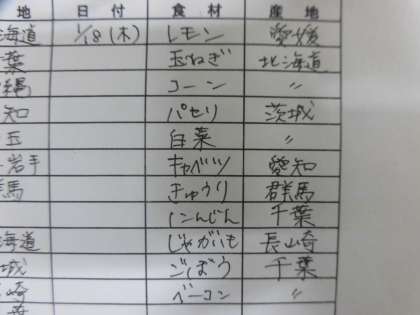 地 日付 食材 産地
海道 1/18(木) レモン 愛媛
葉 玉ねぎ 北海道
縄 コーン 〃
知 パセリ 茨城
玉 白菜 〃
岩手 キャベツ 愛知
馬 きゅうり 群馬
にんじん 千葉
海道 じゃがいも 長崎
城 ごぼう 千葉
崎 ベーコン 〃
葉